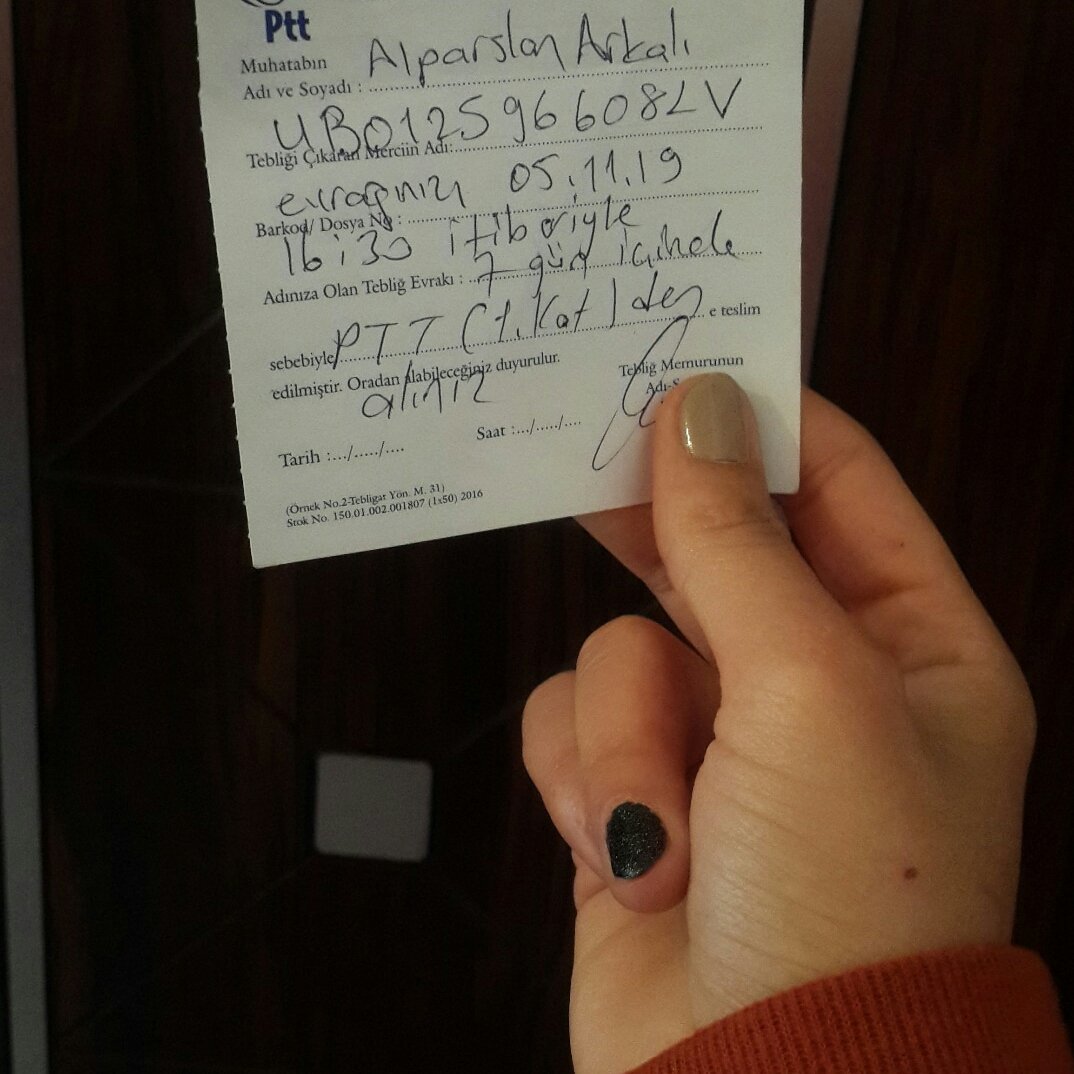 Ptt
Muhatabın
Adı ve Soyadı : Alparslan Arkalı
UB012596608LV
Tebliği Çıkaran Merciin Adı:
evrağınızı 05.11.19
Barkod/ Dosya No :
16:30 itibariyle
Adınıza Olan Tebliğ Evrakı : 7 gün içinde
sebebiyle PTT (1.Kat) den e teslim
edilmiştir. Oradan alabileceğiniz duyurulur.
alınız
Tebliğ Memurunun
Adı-S
Tarih :.../...../....
Saat :.../...../....
(Örnek No.2-Tebligat Yön. M. 31)
Stok No. 150.01.002.001807 (1x50) 2016